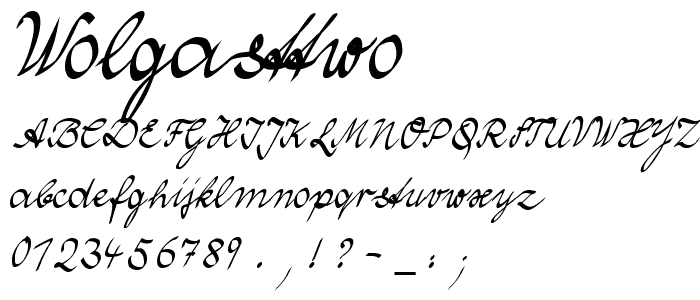 Wolgasttwo
ABCDEFGHIJKLMNOPQRSTUVWXYZ
abcdefghijklmnopqrstuvwxyz
0123456789 . , ! ? - _ : ;